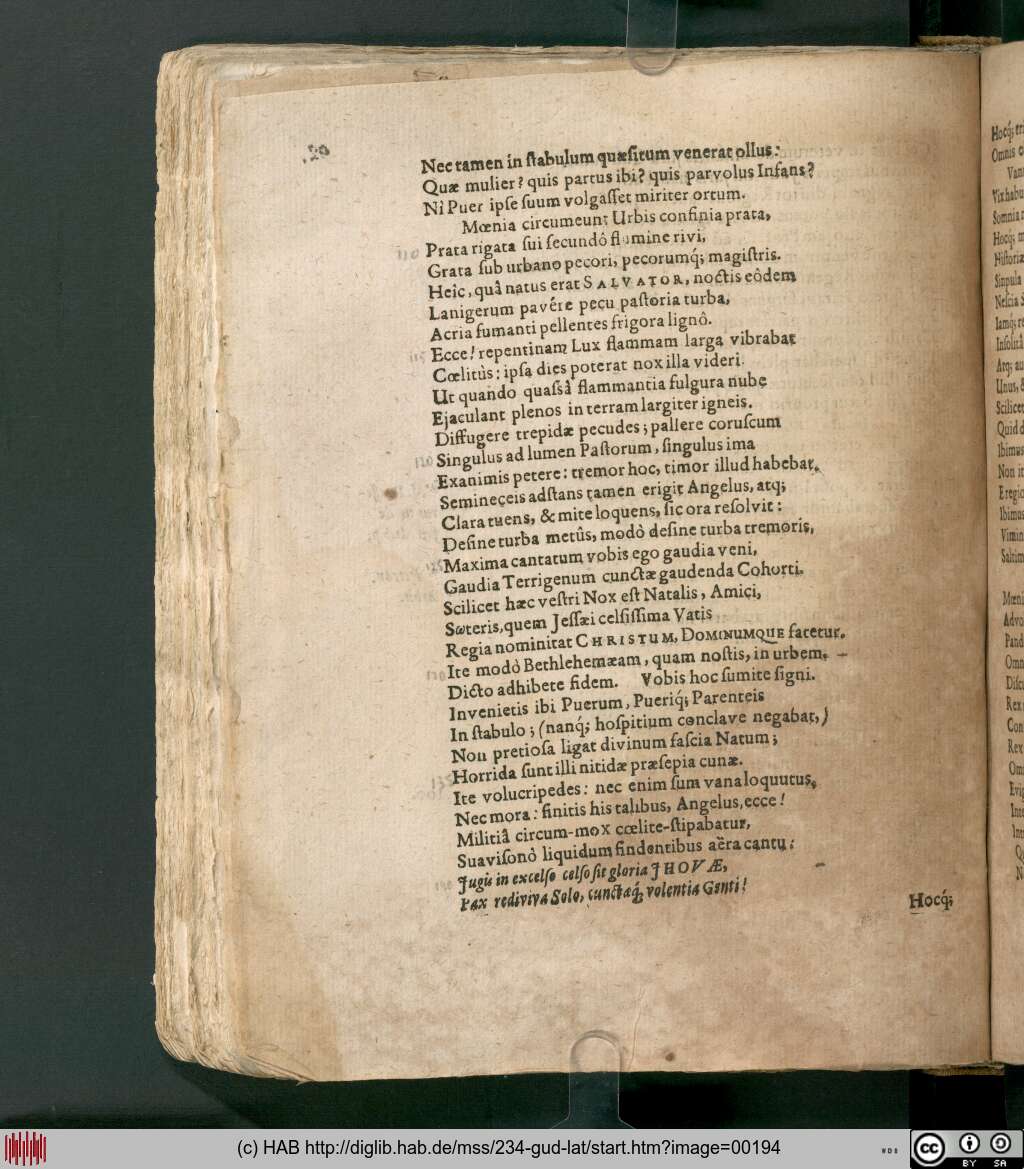 Nec tamen in ſtabulum quæſitum venerat ollus:
Quæ mulier? quis partus ibi? quis parvolus Infans?
Nì Puer ipſe ſuum volgaſſet miriter ortum.
Mœnia circumeunt Urbis confinia prata,
Prata rigata ſui fecundô flumine rivi,
Grata ſub urbano pecori, pecorumq́; magiſtris.
Heîc, quâ natus erat SALVATOR, noctis eôdem
Lanigerum pavêre pecu paſtoria turba,
Acria fumanti pellentes frigora lignô.
Ecce! repentinam Lux flammam larga vibrabat
Cœlitùs: ipſa dies poterat nox illa videri.
Ut quando quaſsâ flammantia fulgura nube
Ejaculant plenos in terram largiter igneis.
Diffugere trepidæ pecudes; pallere coruſcum
Singulus ad lumen Paſtorum, ſingulus ima
Exanimis petere: tremor hoc, timor illud habebat.
Semineceis adſtans tamen erigit Angelus, atq;
Clara tuens, & mite loquens, ſic ora reſolvit:
Deſine turba metûs, modò deſine turba tremoris,
Maxima cantatum vobis ego gaudia veni,
Gaudia Terrigenum cunctæ gaudenda Cohorti.
Scilicet hæc veſtri Nox eſt Natalis, Amici,
Sωteris, quem Jeſſæi celſiſſima Vatis
Regia nominitat CHRISTUM, DOMINUMQUE fatetur.
Ite modò Bethlehemæam, quam noſtis, in urbem,
Dicto adhibete fidem. Vobis hoc ſumite ſigni.
Invenietis ibi Puerum, Pueriq́; Parenteis
In ſtabulo; (nanq́; hoſpitium conclave negabat,)
Non pretioſa ligat divinum faſcia Natum;
Horrida ſunt illi nitidæ præſepia cunæ.
Ite volucripedes: nec enim ſum vana loquutus.
Nec mora: finitis his talibus, Angelus, ecce!
Militiâ circum-mox cœlite-ſtipabatur,
Suaviſonô liquidum findentibus aëra cantu:
Jugis in excelſo celſo ſit gloria JHOVÆ,
Pax rediviva Solo, cunctæq́; volentia Genti!
Hocq́;
(c) HAB http://diglib.hab.de/mss/234-gud-lat/start.htm?image=00194
cc BY SA